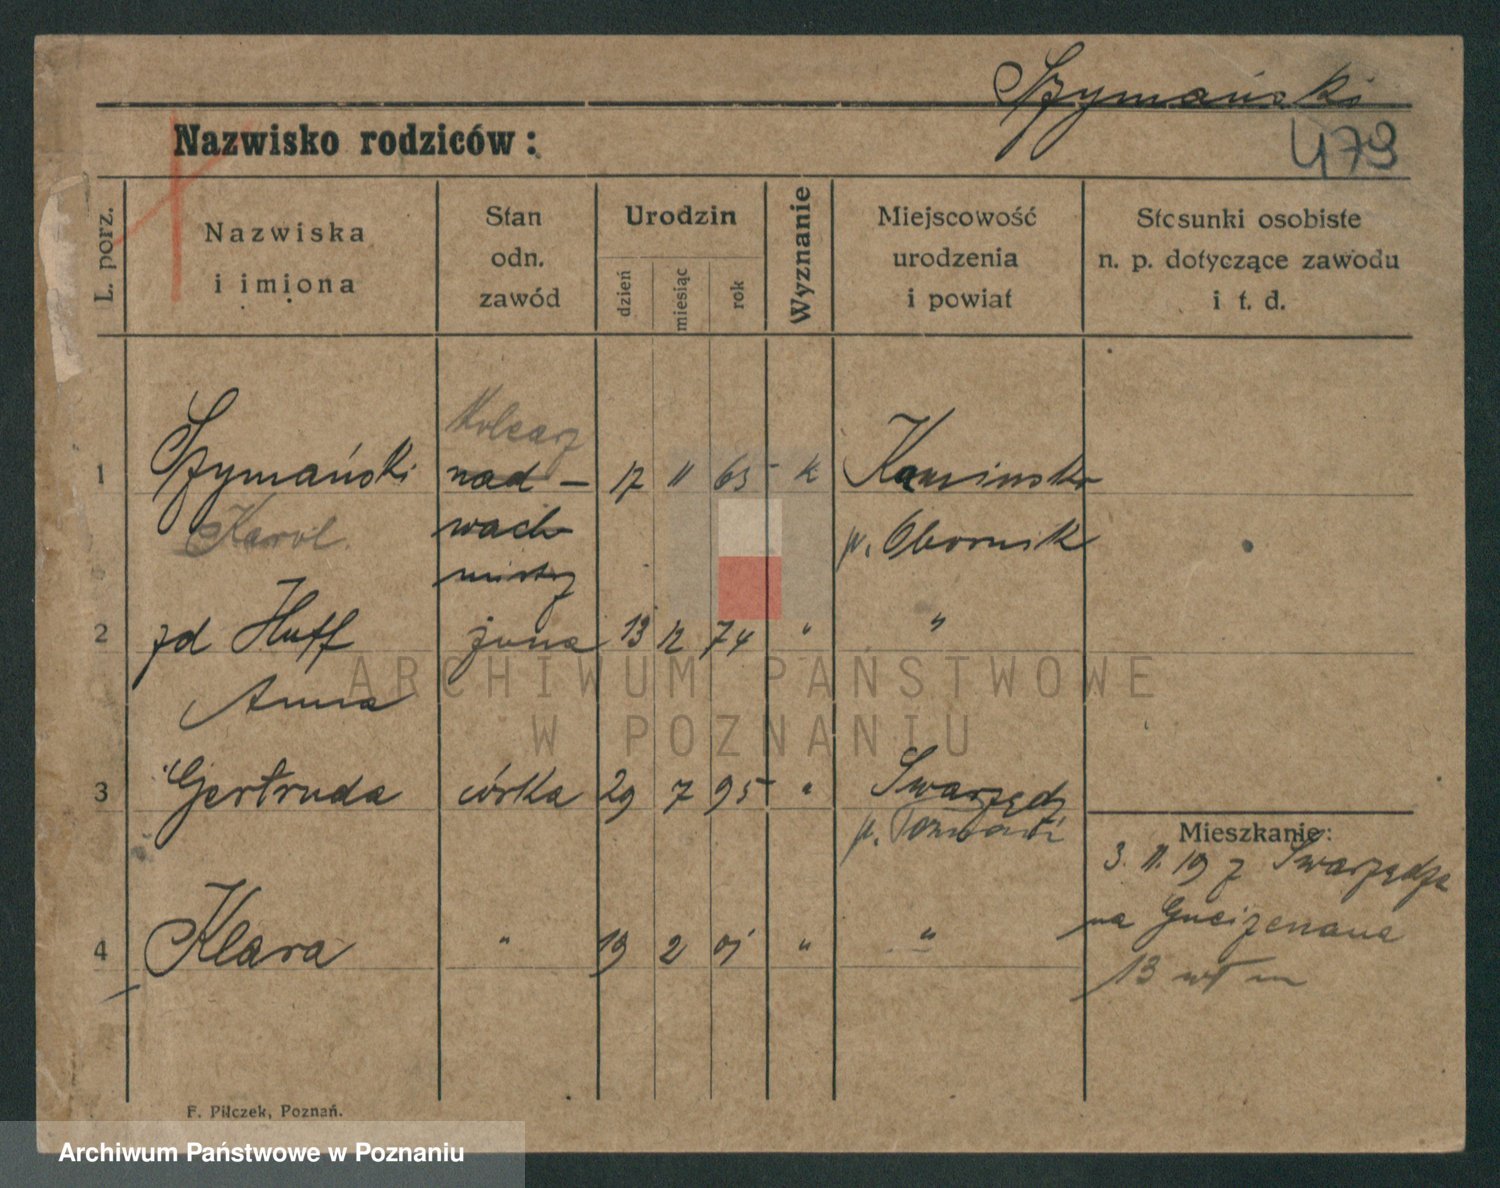 Szymański
479
Nazwisko rodziców:
L. porz.
Nazwiska
i imiona
Stan
odn.
zawód
Urodzin
dzień
miesiąc
rok
Wyznanie
Miejscowość
urodzenia
i powiat
Stosunki osobiste
n. p. dotyczące zawodu
i t. d.
Kolearz
1 Szymański nad- 17 11 65 k Kaminsko
Karol. wach p. Obornik
mistrz
2 zd Huff żona 13 12 74 " "
Anna
3 Gertruda córka 29 7 95 " Swarzędz
p. Poznański
Mieszkanie:
3. 11. 19 z Swarzędza
na Gneizenaua
13 wł m
4 Klara " 19 2 01 " "
F. Pilczek, Poznań.
ARCHIWUM PAŃSTWOWE
W POZNANIU
Archiwum Państwowe w Poznaniu